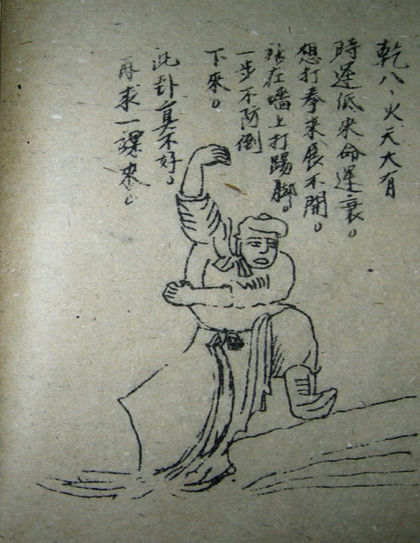 乾八、火天大有
時運低来命運衰。
想打拳来展不開。
站在墻上打踢脚。
一步不防倒
下來。
此卦真不好。
再求一課來。